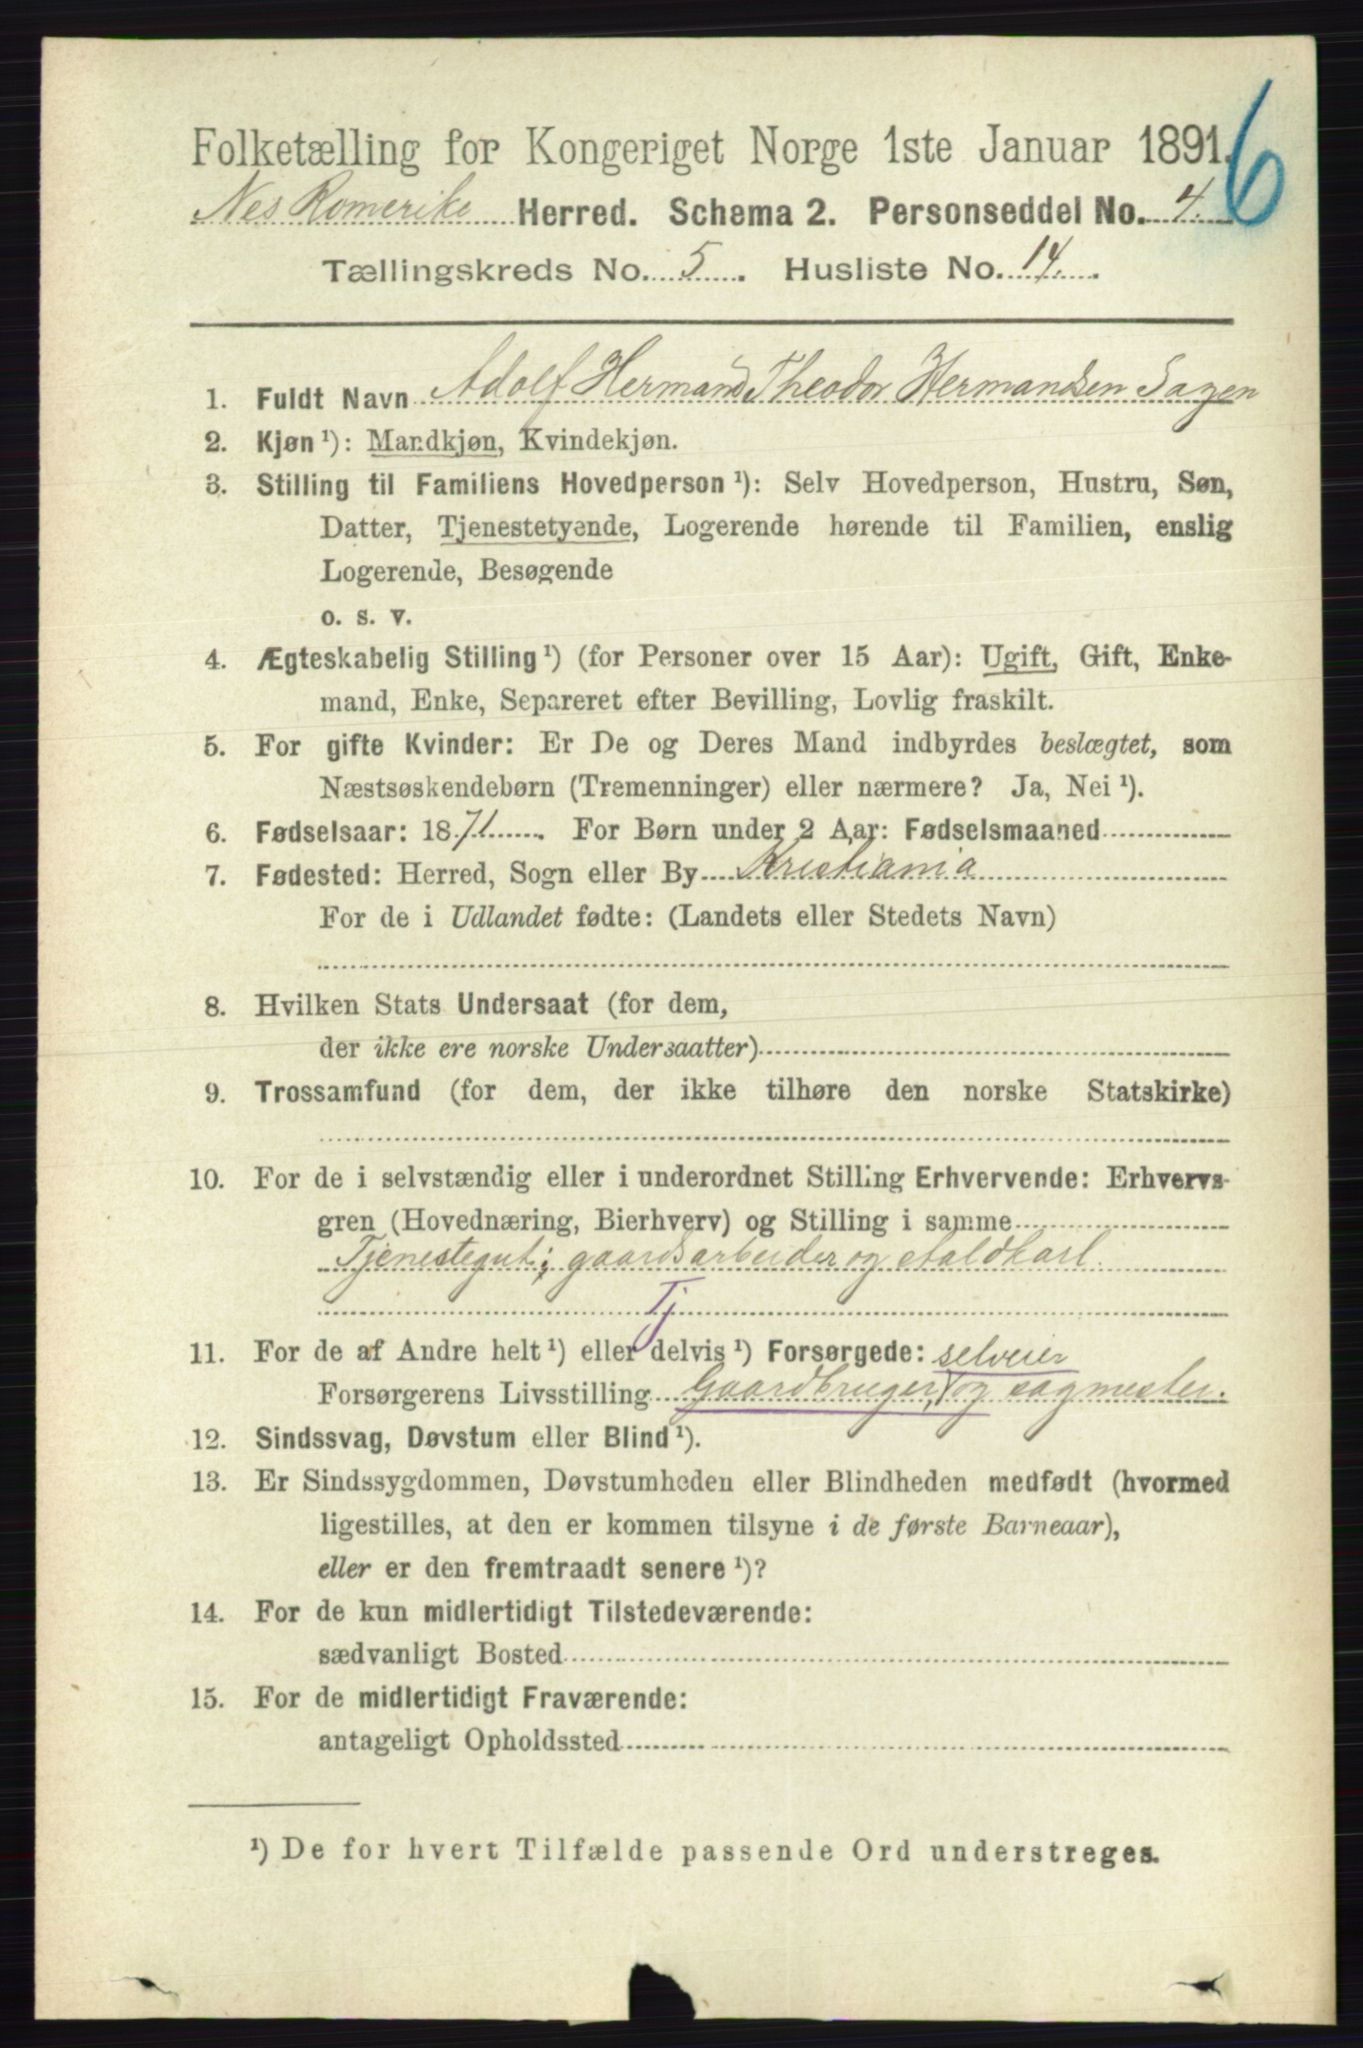 Folketælling for Kongeriget Norge 1ste Januar 1891.
6
Nes Romerike Herred. Schema 2. Personseddel No. 4.
Tællingskreds No. 5. Husliste No. 14.
1. Fuldt Navn Adolf Hermand Theodor Hermandsen Sagen
2. Kjøn ¹): Mandkjøn, Kvindekjøn.
3. Stilling til Familiens Hovedperson ¹): Selv Hovedperson, Hustru, Søn,
Datter, Tjenestetyende, Logerende hørende til Familien, enslig
Logerende, Besøgende
o. s. v.
4. Ægteskabelig Stilling ¹) (for Personer over 15 Aar): Ugift, Gift, Enke-
mand, Enke, Separeret efter Bevilling, Lovlig fraskilt.
5. For gifte Kvinder: Er De og Deres Mand indbyrdes beslægtet, som
Næstsøskendebørn (Tremenninger) eller nærmere? Ja, Nei ¹).
6. Fødselsaar: 1871. For Børn under 2 Aar: Fødselsmaaned
7. Fødested: Herred, Sogn eller By Kristiania
For de i Udlandet fødte: (Landets eller Stedets Navn)
8. Hvilken Stats Undersaat (for dem,
der ikke ere norske Undersaatter)
9. Trossamfund (for dem, der ikke tilhøre den norske Statskirke)
10. For de i selvstændig eller i underordnet Stilling Erhvervende: Erhvervs-
gren (Hovednæring, Bierhverv) og Stilling i samme
Tjenestegut; gaardsarbeider og staldkarl.
Tj
11. For de af Andre helt ¹) eller delvis ¹) Forsørgede: selveier
Forsørgerens Livsstilling Gaardbruger, og sagmester.
12. Sindssvag, Døvstum eller Blind ¹).
13. Er Sindssygdommen, Døvstumheden eller Blindheden medfødt (hvormed
ligestilles, at den er kommen tilsyne i de første Barneaar),
eller er den fremtraadt senere ¹)?
14. For de kun midlertidigt Tilstedeværende:
sædvanligt Bosted
15. For de midlertidigt Fraværende:
antageligt Opholdssted
¹) De for hvert Tilfælde passende Ord understreges.